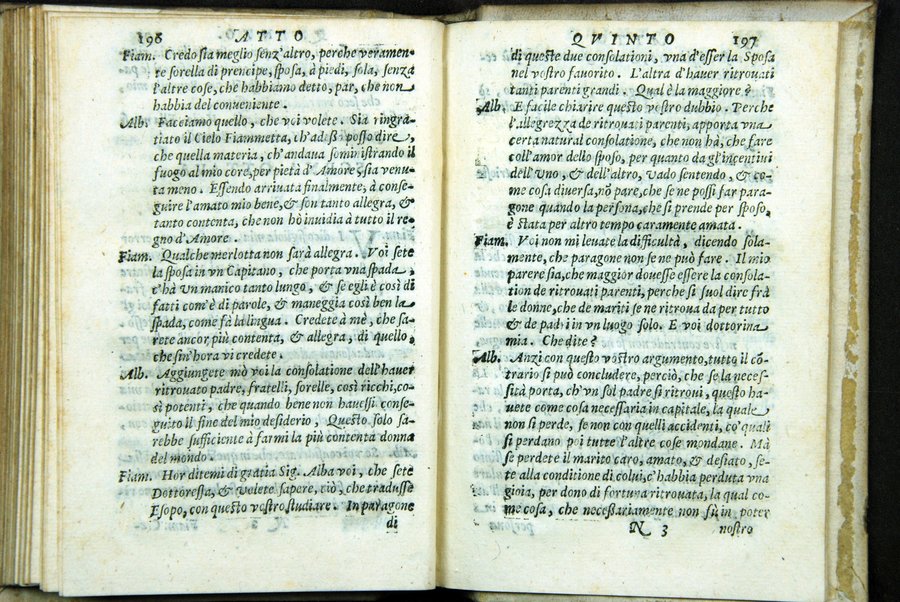 196 ATTO
Fiam. Credo sia meglio senz'altro, perche veramen-
re sorella di prencipe, sposa, à piedi, sola, senza
l'altre cose, che habbiamo detto, par, che non
habbia del conveniente.
Alb. Facciamo quello, che voi volete. Sia ringra-
tiato il Cielo Fiammetta, ch'adesso posso dire,
che quella materia, ch'andava sominiſtrando il
fuogo al mio core, per pietà d'Amore, sia venu-
ta meno. Essendo arrivata finalmente, à conse-
guire l'amato mio bene, & son tanto allegra, &
tanto contenta, che non hò invidia à tutto il re-
gno d'Amore.
Fiam. Qualche merlotta non sarà allegra. Voi sete
la sposa in vn Capitano, che porta vna spada,
c'hà vn manico tanto lungo, & se egli è così di
fatti com'è di parole, & maneggia così ben la
spada, come fà la lingua. Credete à mè, che sa-
rete ancor più contenta, & allegra, di quello,
che sin'hora vi credete.
Alb. Aggiungete mò voi la consolatione dell'hauer
ritrovato padre, fratelli, sorelle, così ricchi, co-
sì potenti, che quando bene non hauessi conse-
guito il fine del mio desiderio, Questo solo sa-
rebbe sufficiente à farmi la più contenta donna
del mondo.
Fiam. Hor ditemi di gratia Sig. Alba voi, che sete
Dottoressa, & volete sapere, ciò, che tradusse
Esopo, con questo vostro studiare. In paragone
di
QVINTO 197
di queste due consolationi, vna d'esser la Sposa
nel vostro favorito. L'altra d'hauer ritrouati
tanti parenti grandi. Qual è la maggiore?
Alb. E facile chiarire questo vostro dubbio. Perche
l'allegrezza de ritrouati parenti, apporta vna
certa natural consolatione, che non hà, che fare
coll'amor dello sposo, per quanto da gl'incentivi
dell'Uno, & dell'altro, vado sentendo, & co-
me cosa diversa, nõ pare, che se ne possi far para-
gone quando la persona, che si prende per sposo,
è stata per altro tempo caramente amata.
Fiam. Voi non mi leuate la difficultà, dicendo sola-
mente, che paragone non se ne può fare. Il mio
parere sia, che maggior douesse essere la consola-
tion de ritrouati parenti, perche si suol dire frà
le donne, che de mariti se ne ritroua da per tutto
& de padri in vn luogo solo. E voi dottorina
mia. Che dite?
Alb. Anzi con questo vostro argumento, tutto il cõ-
trario si può concludere, perciò, che se la neces-
sità porta, ch'vn sol padre si ritrovi, questo ha-
uete come cosa necessaria in capitale, la quale
non si perde, se non con quelli accidenti, co' quali
si perdano poi tutte l'altre cose mondane. Mà
se perdete il marito caro, amato, & desiato, se-
te alla conditione di colui, c'habbia perduta vna
gioia, per dono di fortuna ritrouata, la qual co-
me cosa, che necessariamente non fù in poter
N 3 nostro